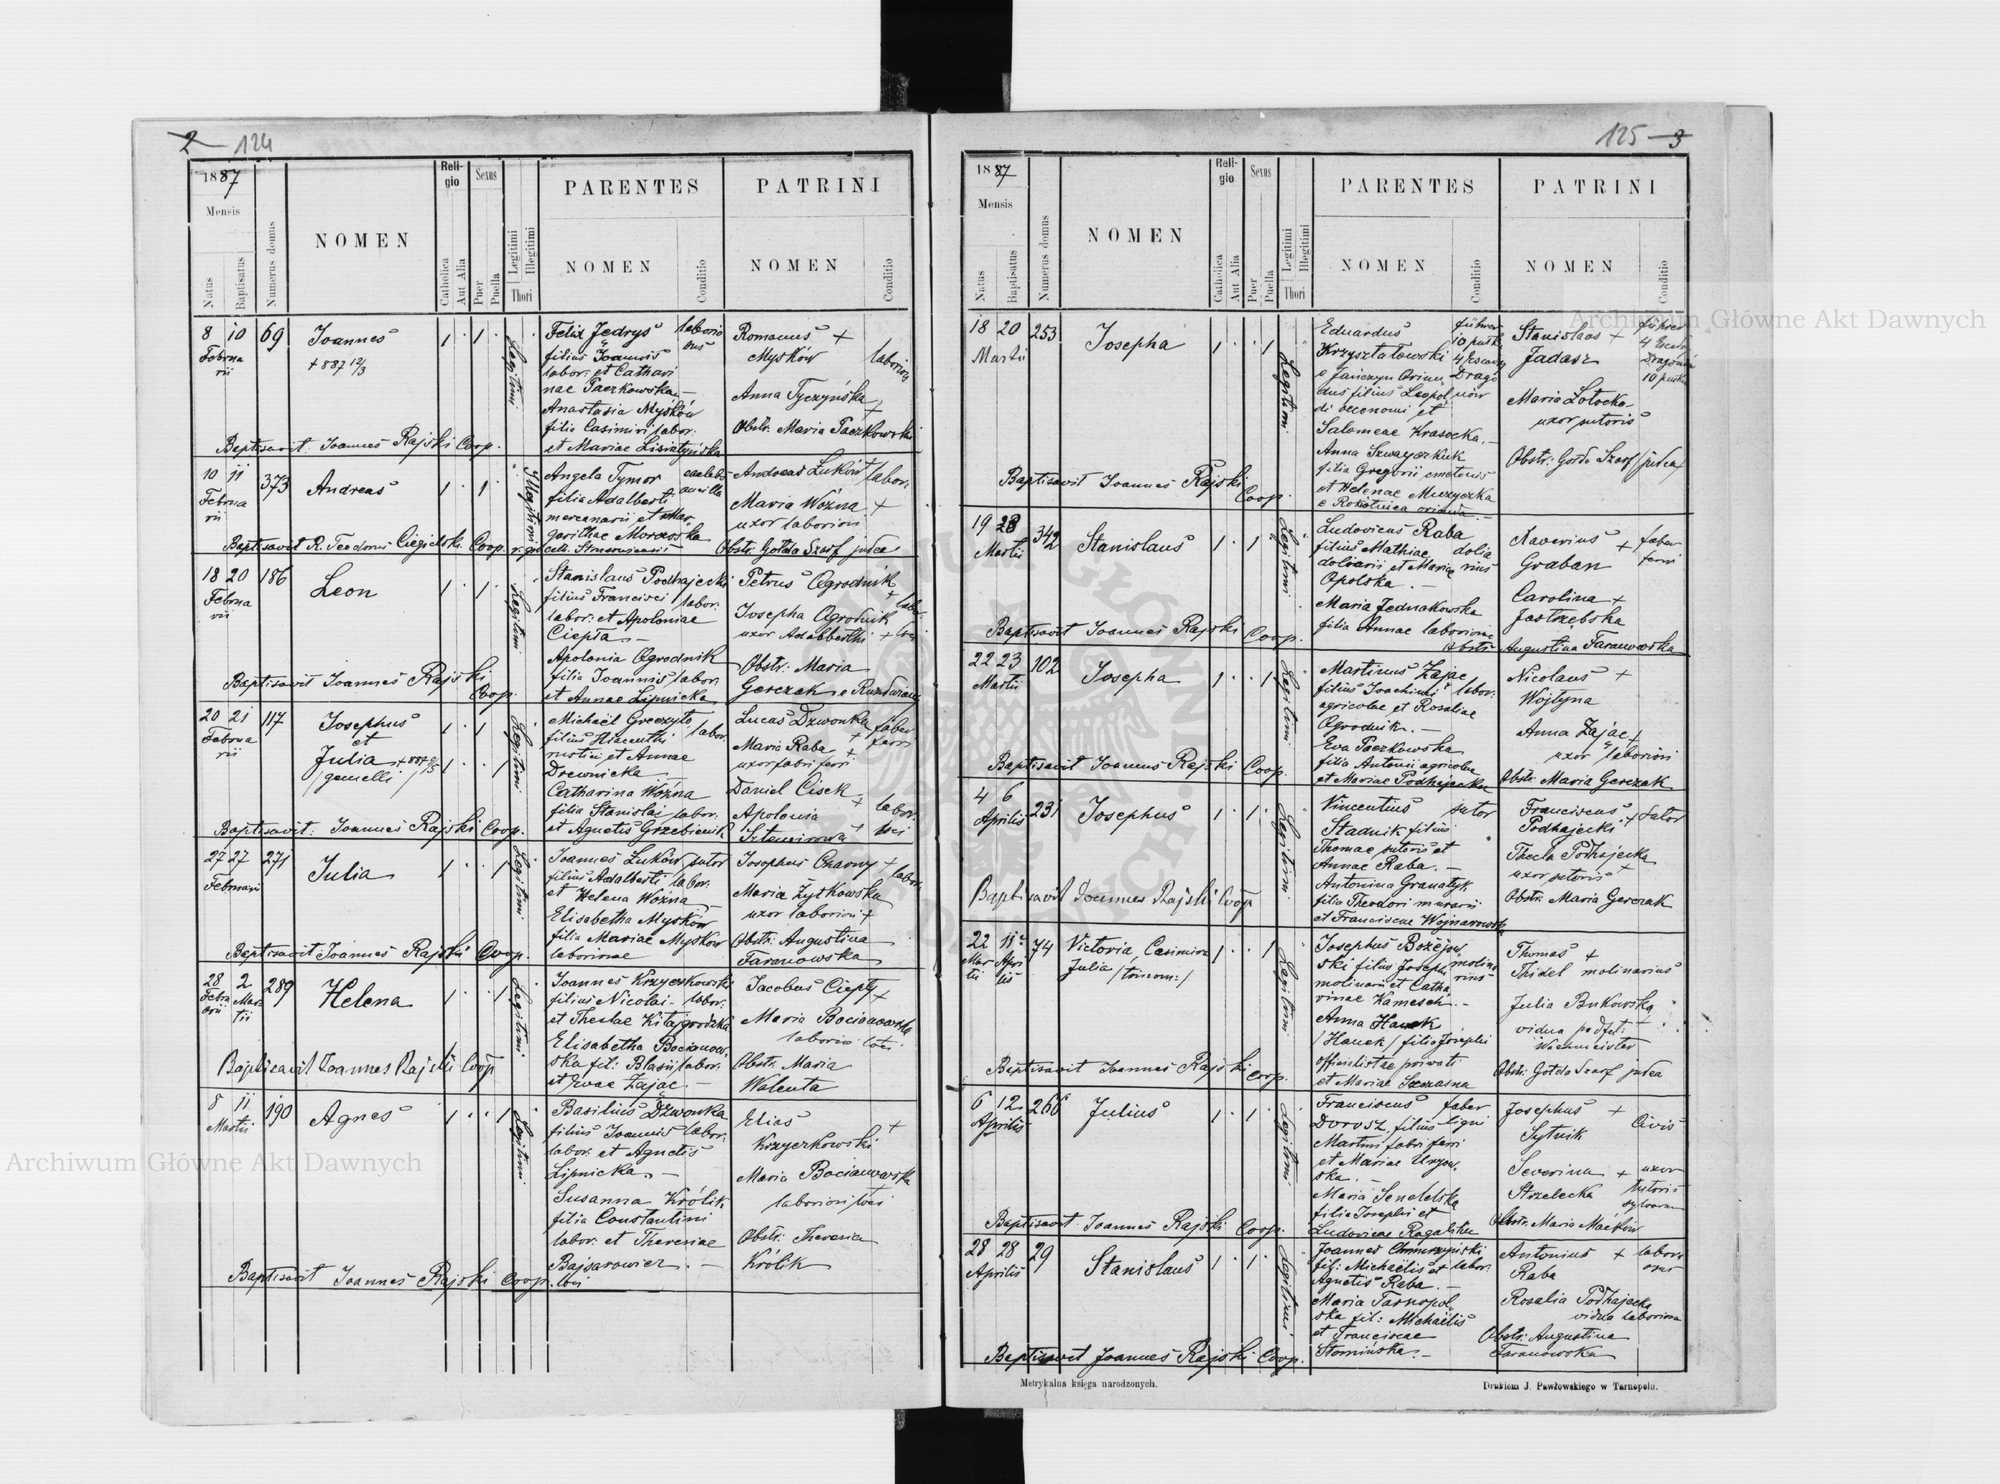 2 124
1887
Mensis
Natus
Baptisatus
Numerus domus
NOMEN
Reli-
gio
Catholica
Aut Alia
Sexus
Puer
Puella
Legitimi
Illegitimi
Thori
PARENTES
NOMEN
Conditio
PATRINI
NOMEN
Conditio
8 10 69 Joannes
Februa
rii
+ 887 12/3
1 1 Legitimi
Felix Jedryś laborio
filius Joannis
labor. et Cathari
nae Paczkowska —
Anastasia Myśków
filia Casimiri labor.
et Mariae
Romanus +
Myśków laboriosi
Anna Tyczyńska +
Obstr. Maria Paczkowska
Baptisavit Joannes Rajski Coop.
10 11 373 Andreas
Februa
rii
1 1 Illegitimi
Angela Tymor caelebs
filia Adalberti ancilla
mercenarii et Mar
garithae
Andreas Łuków labor.
Maria Woźna +
uxor laboriosi
Obstr. Golda Szarf judea
Baptisavit R. Teodorus Ciegielski Coop.
18 20 186 Leon
Februa
rii
1 1 Legitimi
Stanislaus Podhajecki
filius Francisci labor.
labor. et Apoloniae
Ciepła —
Apolonia Ogrodnik
filia Joannis labor.
et Annae Lipnicka
Petrus Ogrodnik
+ labor.
Josepha Ogrodnik
uxor Adalberthi + loci
Obstr. Maria
Gerczak e
Baptisavit Joannes Rajski
Coop.
20 21 117 Josephus
Februa
rii
et
Julia + 887
/gemelli/
1 1 Legitimi
Michaël Greczyło
filius Hiacenthi labor.
rustici et Annae
Drewnicka
Catharina Woźna
filia Stanislai labor.
et Agnetis Grzebieniak
Lucas Dzwonka faber
ferri
Maria Raba +
uxor fabri ferri
Daniel Cisek +
Apolonia labor.
loci
Baptisavit: Joannes Rajski Coop.
27 27 271 Julia
Februarii
1 1 Legitimi
Joannes Łuków sutor
filius Adalberti labor.
et Helena Woźna
Elisabetha Myśków
filia Mariae Myśków
laboriosae
Josephus Czarny + labor.
Maria Żytkowska
uxor laboriosi +
Obstr. Augustina
Taranowska
Baptisavit: Joannes Rajski Coop.
28 2 289 Helena
Febru Mar
arii tii
1 1 Legitimi
Joannes Krzyczkowski
filius Nicolai labor.
et Theclae Kitajgrodzka
Elisabetha Bocianow
ska fil: Blasii labor.
et Evae Zając. —
Jacobus Ciepły +
Maria Bocianowska
laborio loci
Obstr. Maria
Walenta
Baptisavit Joannes Rajski Coop
8 11 190 Agnes
Martii
1 1 Legitimi
Basilius Dzwonka
filius Joannis labor.
labor. et Agnetis
Lipnicka —
Susanna Królik
filia Constantini
labor. et Theresiae
Bajsarowicz —
loci
Elias +
Krzyczkowski
Maria Bocianowska
laboriosi loci
Obstr. Theresia
Królik
Baptisavit Joannes Rajski Coop.
125 3
1887
Mensis
Natus
Baptisatus
Numerus domus
NOMEN
Reli-
gio
Catholica
Aut Alia
Sexus
Puer
Puella
Legitimi
Illegitimi
Thori
PARENTES
NOMEN
Conditio
PATRINI
NOMEN
Conditio
18 20 253 Josepha
Martii
1 1 Legitimi
Eduardus führer
Krzyształowski
e Jańczyn Oriun
dus filius Leopol
di oeconomi et
Salomeae Krasocka.
Anna Szwayczkuk
filia Gregorii
et Helenae Muzyczka
e Rokitnica
Stanislaus + führer
Jadasz
Maria Łotocka
uxor sutoris
Obstr. Golda Szarf /judea/
Baptisavit Joannes Rajski
Coop.
19 28 342 Stanislaus
Martii
1 1 Legitimi
Ludovicus Raba
filius Mathiae dolia
doliarii et Mariae rius
Opolska. —
Maria Jednakowska
filia Annae laboriosae
Xaverius + faber
Graban ferri
Carolina +
Jastrzębska
Obstr. Augustina Taranowska
Baptisavit Joannes Rajski Coop.
22 23 102 Josepha
Martii
1 1 Legitimi
Martinus Zając
filius Joachimi labor.
agricolae et Rosaliae
Ogrodnik. —
Eva Paczkowska
filia Antonii agricolae
et Mariae Podhajecka
Nicolaus +
Wojtyna
Anna Zając +
uxor laboriosi
Obstr. Maria Gerczak
Baptisavit Joannes Rajski Coop.
4 6 231 Josephus
Aprilis
1 1 Legitimi
Vincentius sutor
Stadnik filius
Thomae sutoris et
Annae Raba. —
Antonina Granatyk
filia Theodori murarii
et Franciscae Wojnarowska
Franciscus + Sutor
Podhajecki
Thecla Podhajecka
uxor sutoris +
Obstr. Maria Gerczak
Baptisavit Joannes Rajski Coop
22 11 74 Victoria, Casimira
Mar Apri
tii lis
Julia /trinom:/
1 1 Legitimi
Josephus Bożejow
ski filius Josephi molina
molinarii et Catha rius
rinae Kamesch. —
Anna Hanek
/Hanek/ filia Josephi
officialistae privati
et Mariae Szczasna
Thomas +
Thidel molinarius
Julia Bukowska
vidua
Wachmeister
Obstr. Golda Szarf judea
Baptisavit Joannes Rajski Coop.
6 12 266 Julius
Aprilis
1 1 Legitimi
Franciscus faber
Dorosz, filius ligni
Martini fabri ferri
et Mariae
ska. —
Maria Sendelska
filia Josephi et
Ludovicae
Josephus + Civis
Sytnik
Severina + uxor
Strzelecka tutoris
sylvarum
Obstr. Maria Maćków
Baptisavit Joannes Rajski Coop.
28 28 29 Stanislaus
Aprilis
1 1 Legitimi
Joannes
fil: Michaëlis et labor.
Agnetis Raba. —
Maria Tarnopol
ska fil: Michaëlis
et Franciscae
Słomińska. —
Antonius + labori
Raba osus
Rosalia Podhajecka
vidua laboriosa
Obstr. Augustina
Taranowska
Baptisavit Joannes Rajski Coop.
Metrykalna księga narodzonych.
Drukiem J. Pawłowskiego w Tarnopolu.
Archiwum Główne Akt Dawnych
Archiwum Główne Akt Dawnych